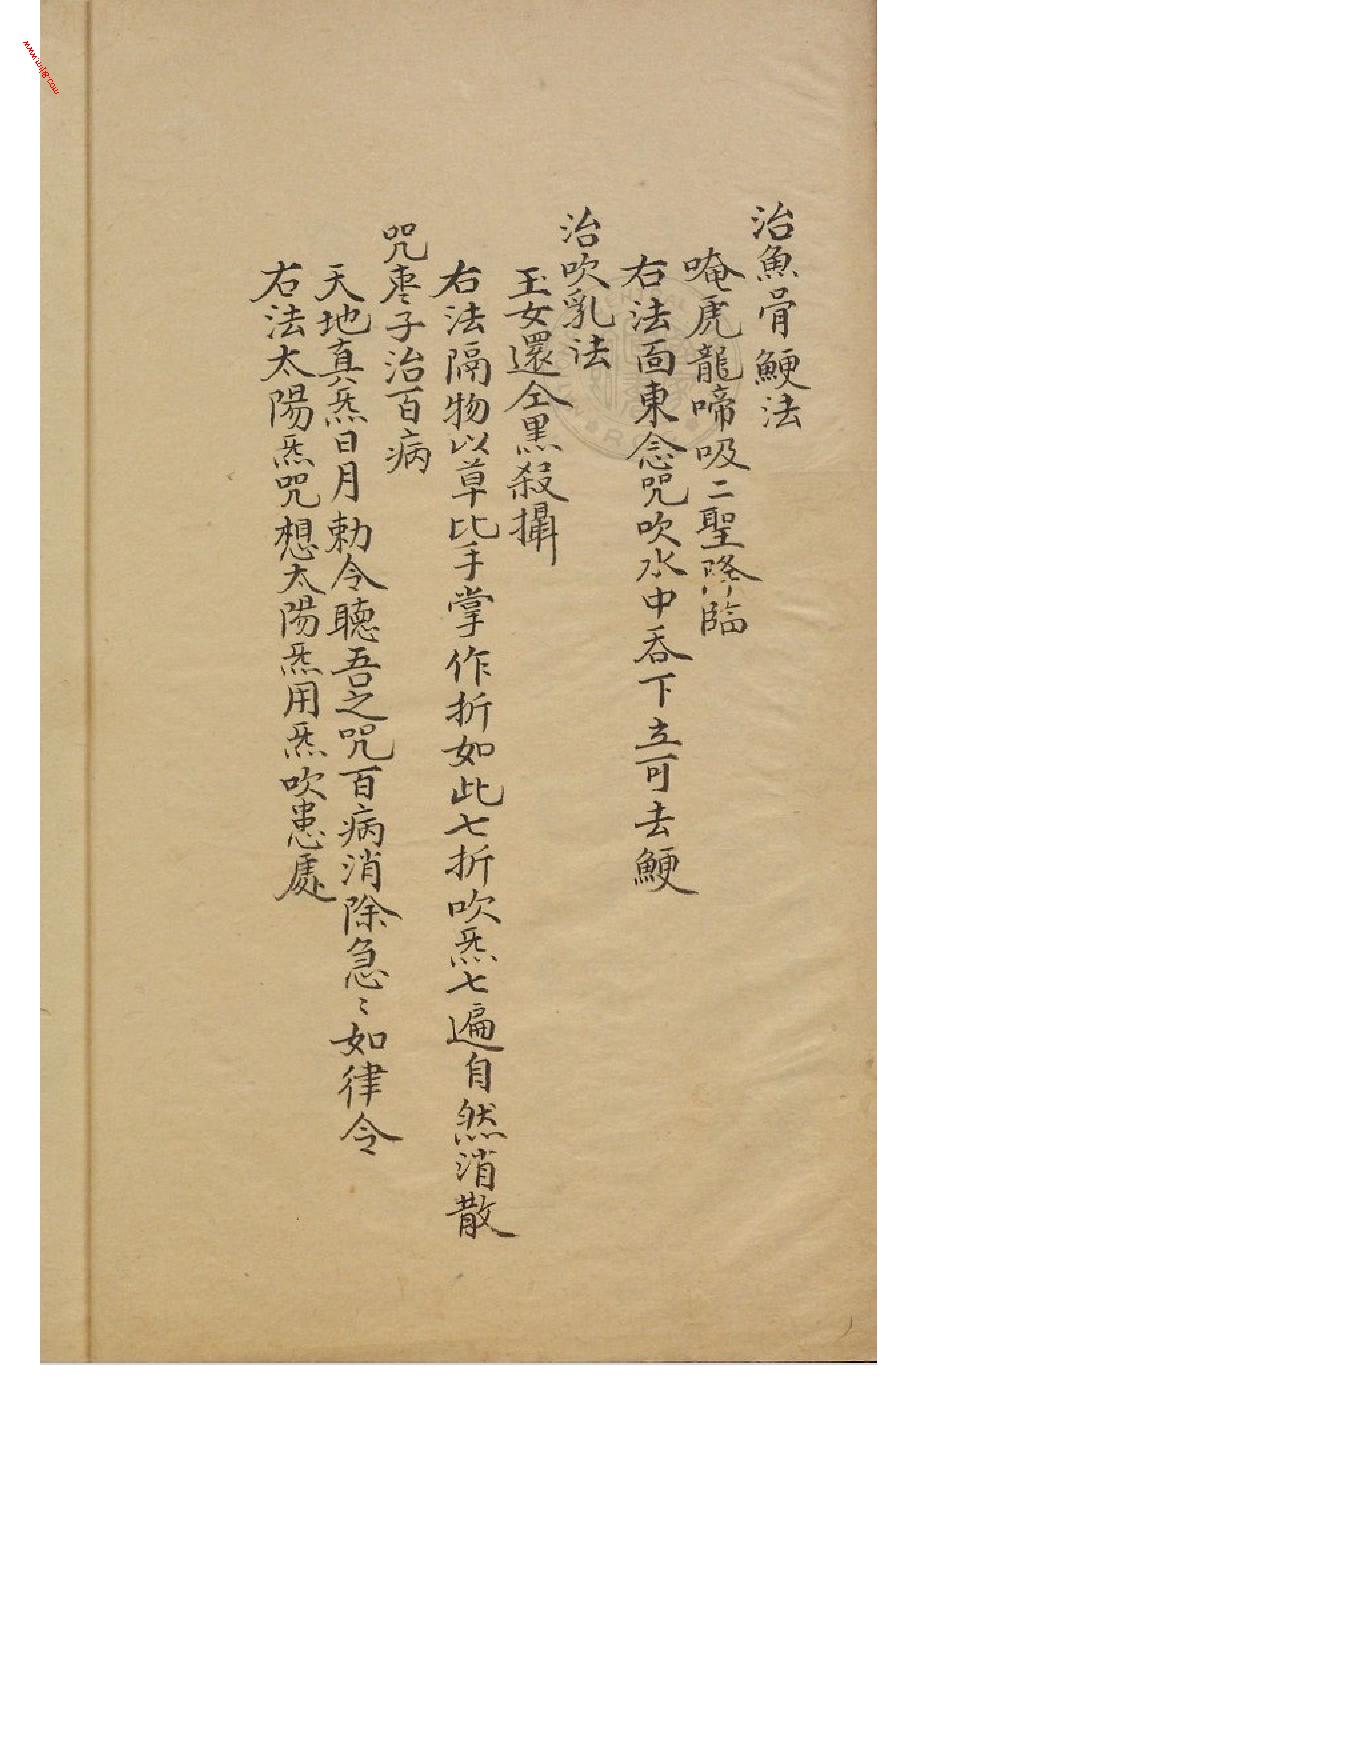 治魚骨鯁法
唵虎龍啼吸二聖降臨
右法面東念咒吹水中吞下立可去鯁
治吹乳法
玉女還仝黑殺攝
右法隔物以草比手掌作折如此七折吹炁七遍自然消散
咒棗子治百病
天地真炁日月勅令聽吾之咒百病消除急〻如律令
右法太陽炁咒想太陽炁用炁吹患處